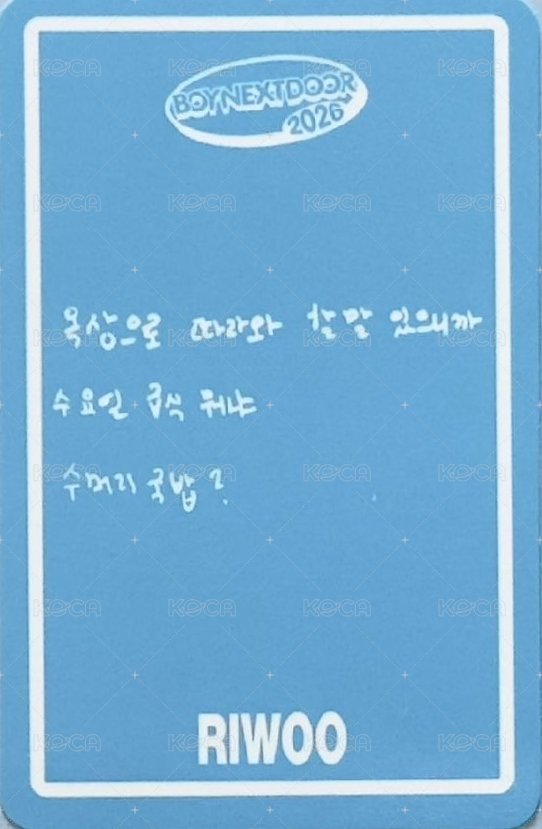 BOYNEXTDOOR
2026
옥상으로 따라와 할 말 있으니까
수요일 급식 뭐냐
수머리 국밥?
RIWOO
KOCA